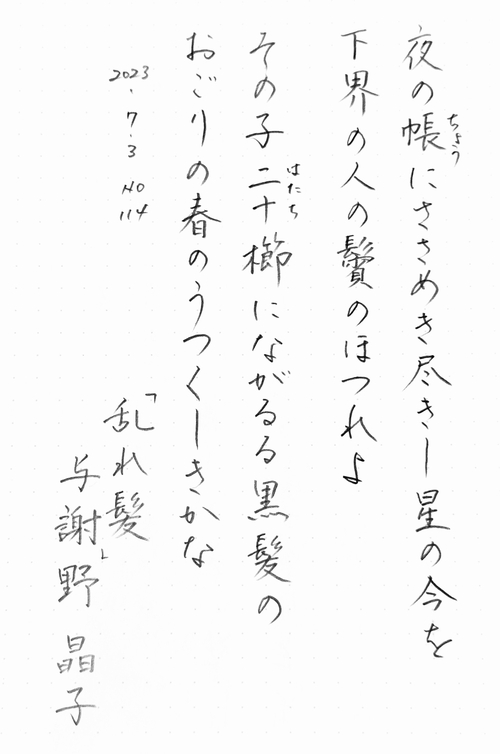 夜の帳にささめき尽きし星の今を
ちょう
下界の人の鬢のほつれよ
その子二十櫛にながるる黒髪の
はたち
おごりの春のうつくしきかな
2023・7・3 NO 114
「乱れ髪」
与謝野 晶子